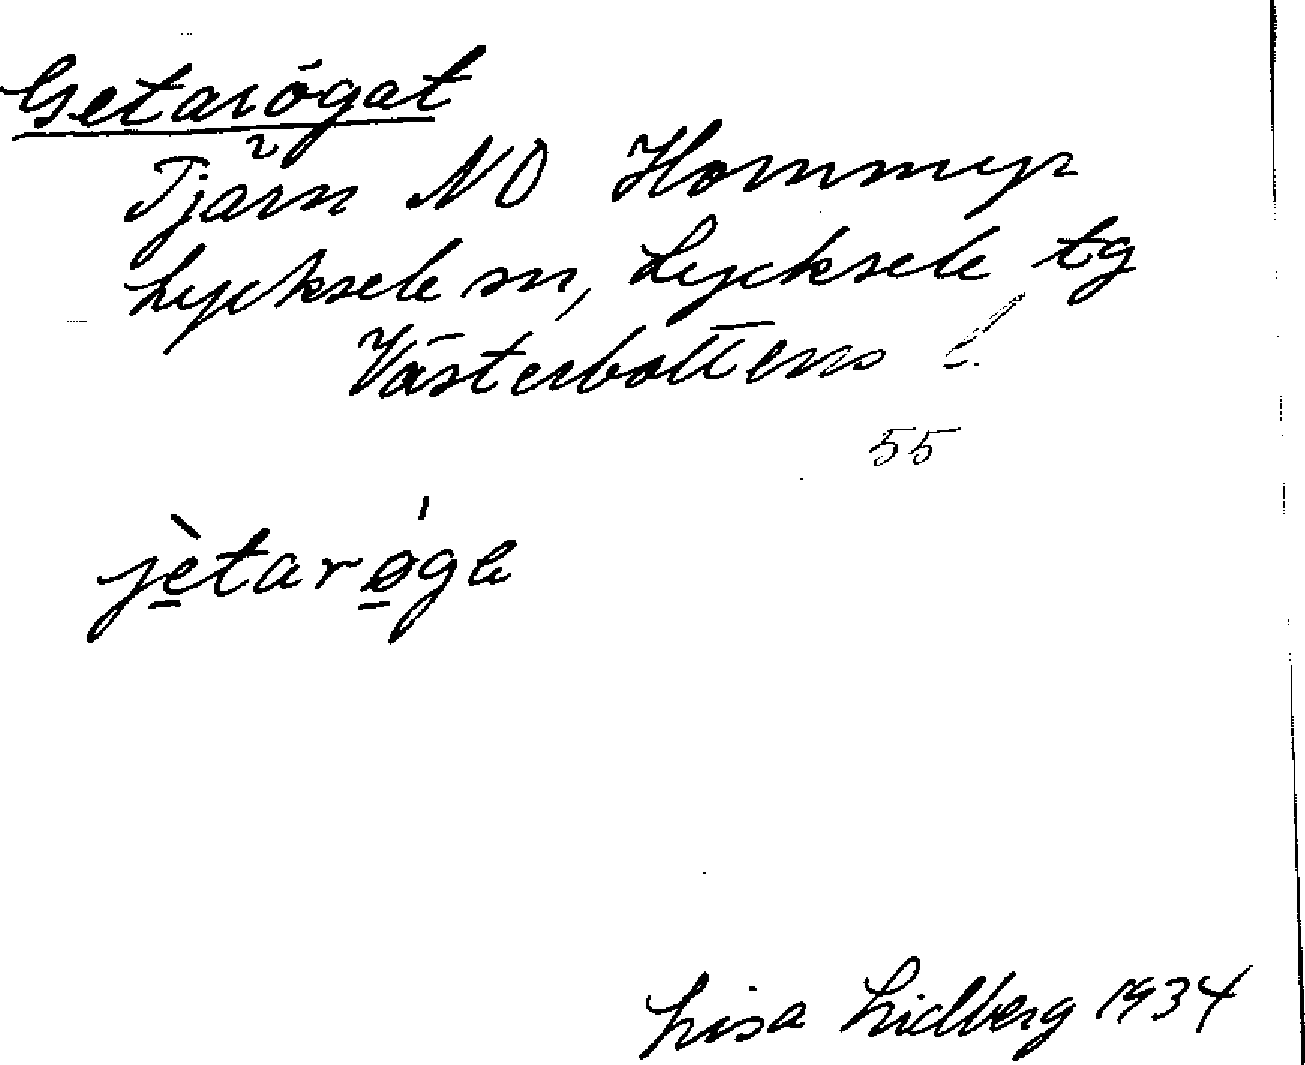 Getarögat
Tjärn NO Hornmyr
Lycksele sn, Lycksele tg
Västerbottens l.
55
jètarøga
Lisa Lidberg 1934